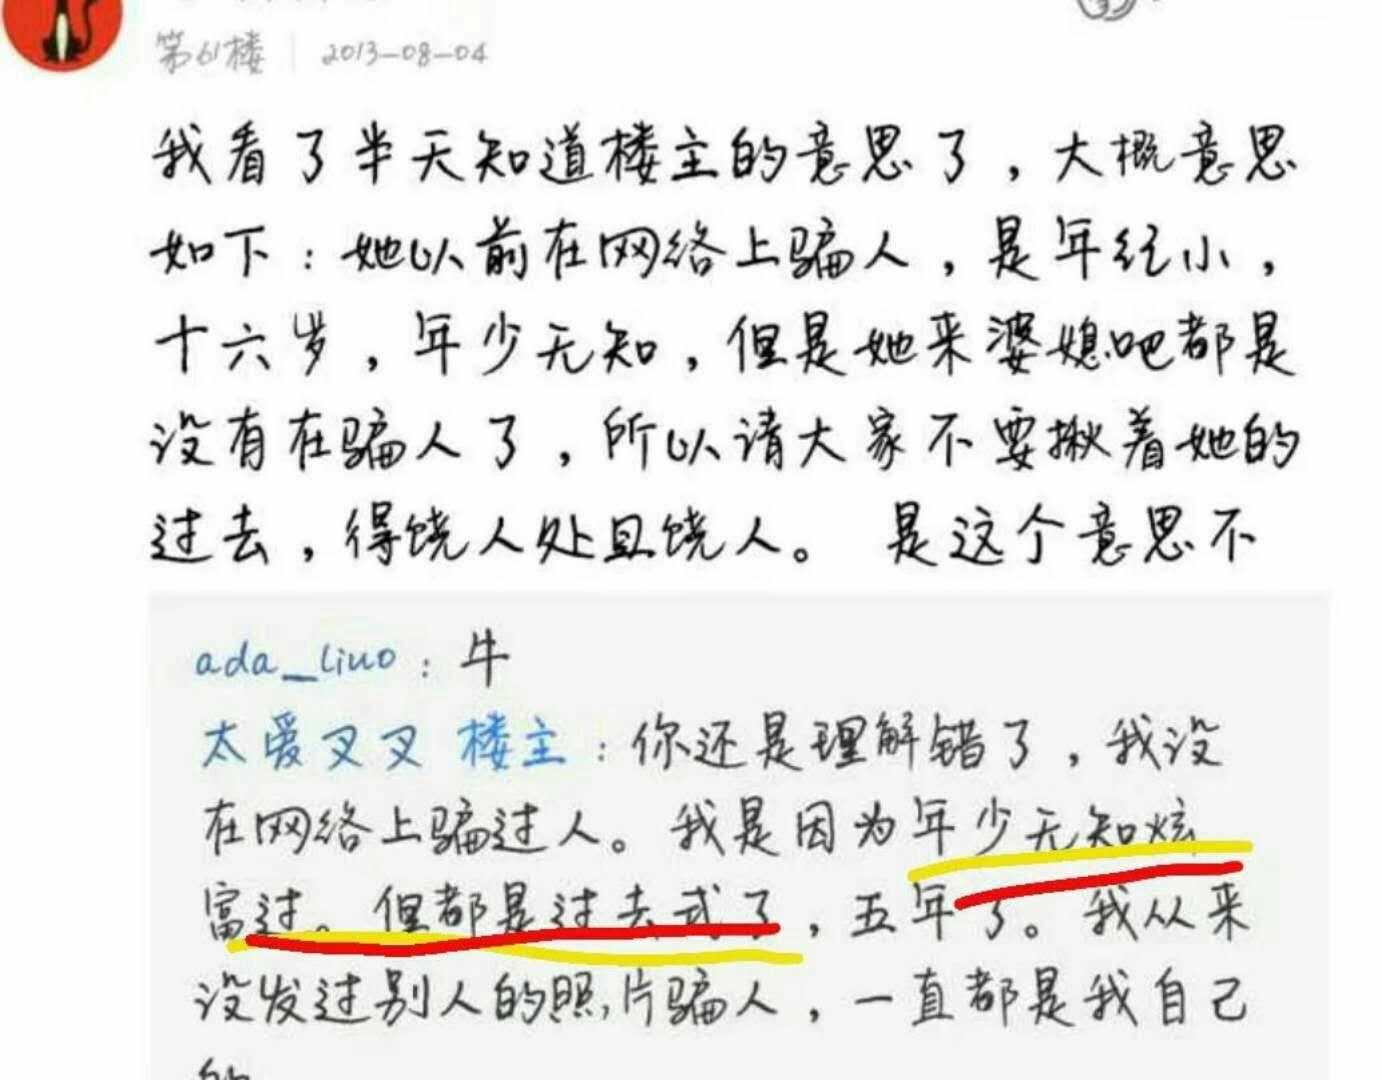 第61楼 | 2013-08-04
我看了半天知道楼主的意思了，大概意思
如下：她以前在网络上骗人，是年纪小，
十六岁，年少无知，但是她来婆媳吧都是
没有在骗人了，所以请大家不要揪着她的
过去，得饶人处且饶人。 是这个意思不
ada_liuo：牛
太爱叉叉 楼主：你还是理解错了，我没
在网络上骗过人。我是因为年少无知炫
富过。但都是过去式了，五年了。我从来
没发过别人的照片骗人，一直都是我自己
的